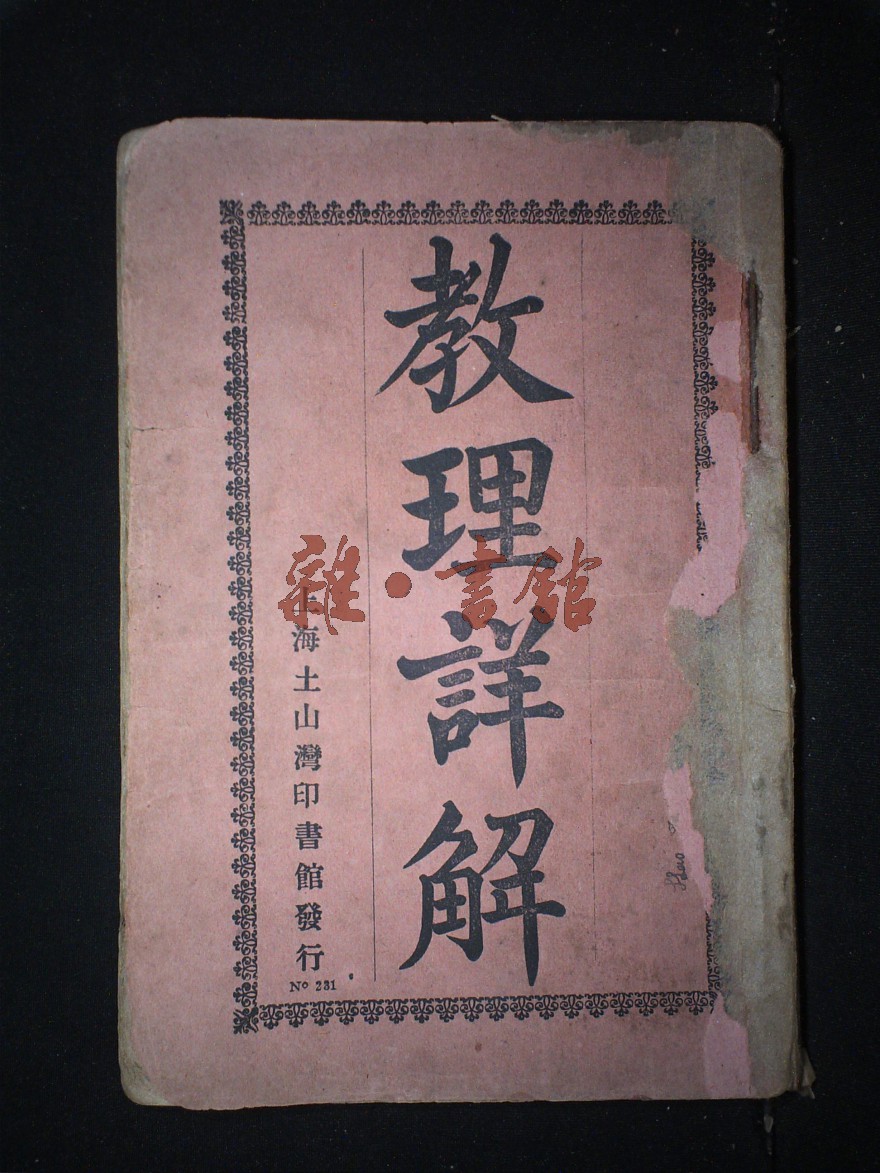 教理詳解
上海土山灣印書館發行
Nº 231
雜·書館